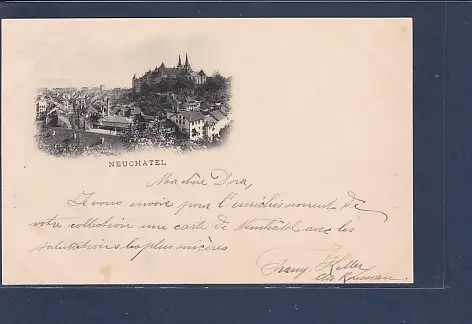 NEUCHATEL
Ma chère Dora,
Je vous envoie pour l'enrichissement de
votre collection une carte de Neuchatel avec les
salutations les plus sincères
Keller